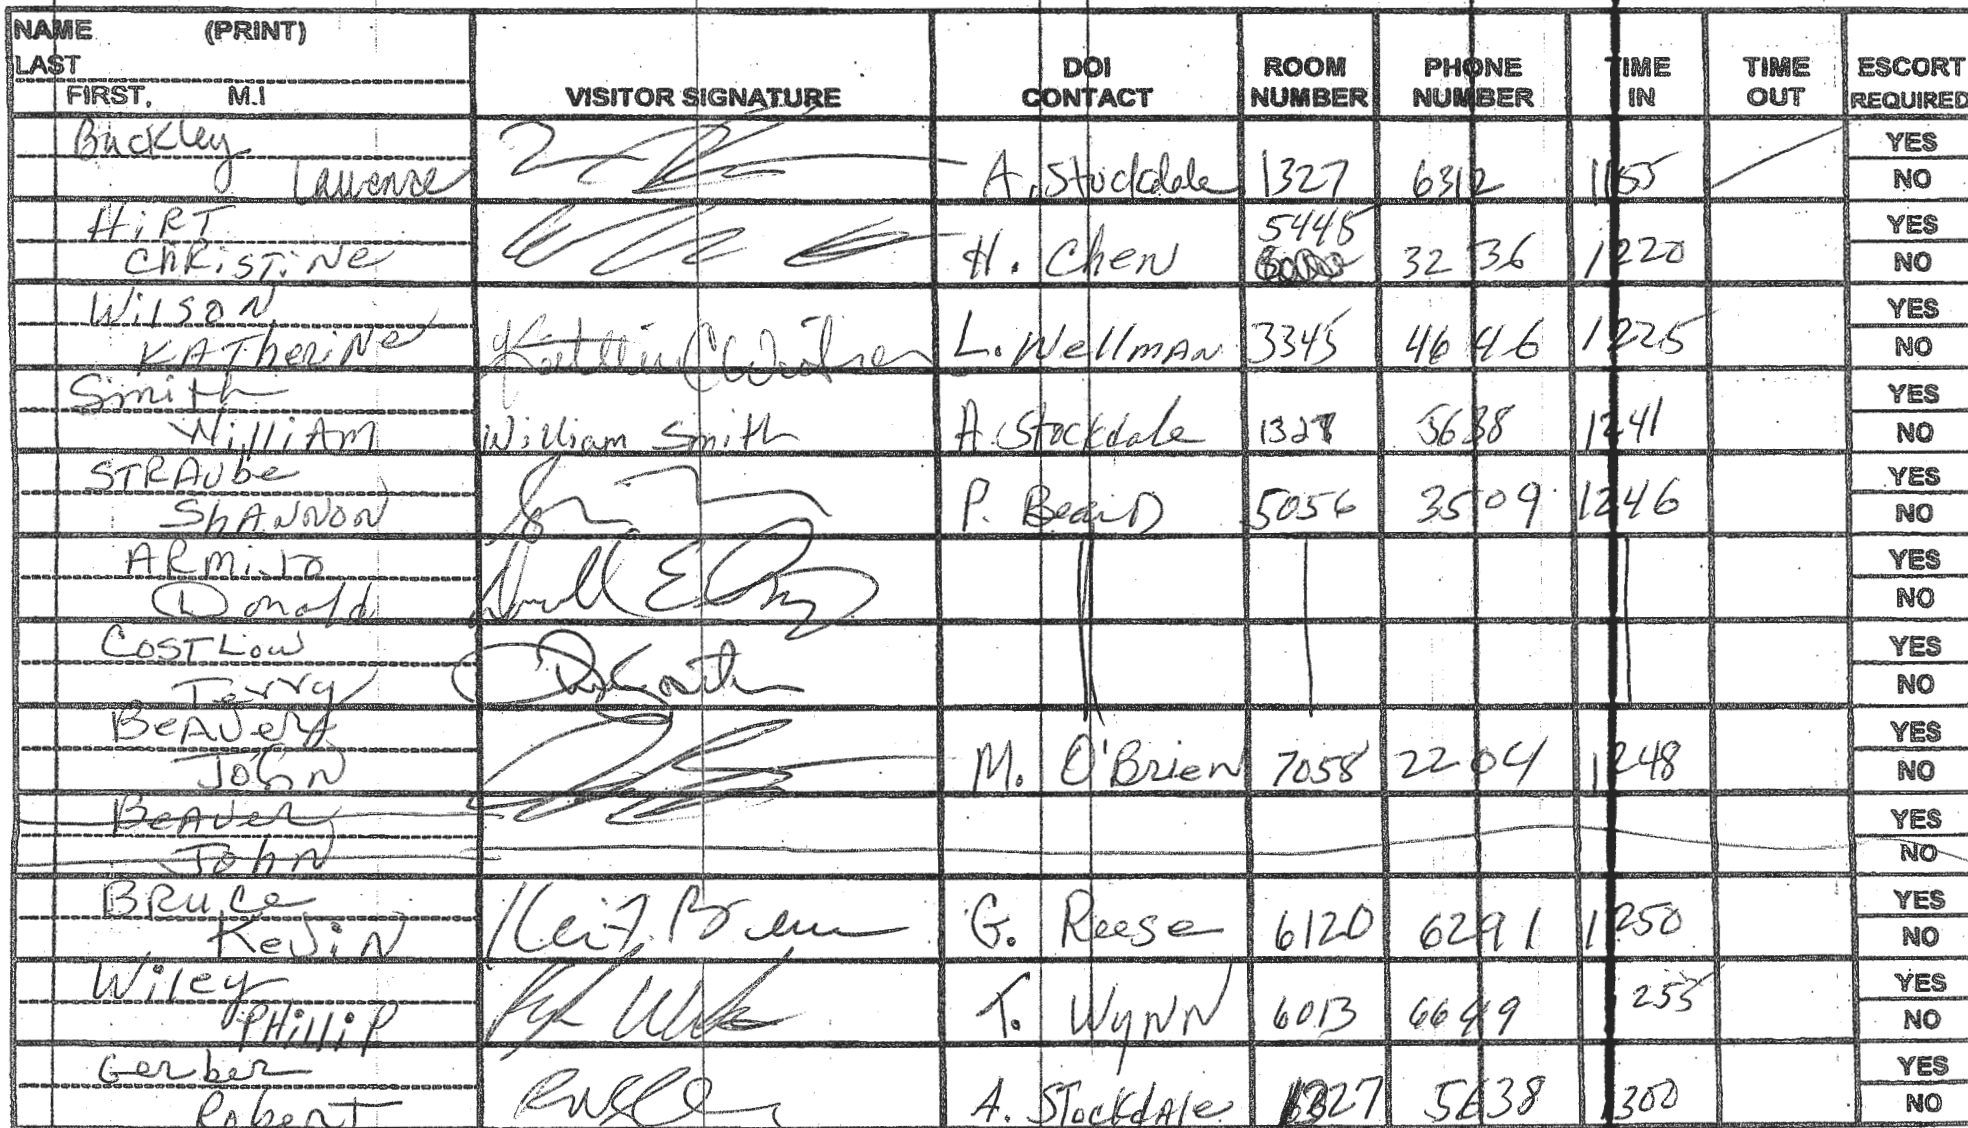 NAME (PRINT)
LAST
FIRST, M.I
VISITOR SIGNATURE
DOI
CONTACT
ROOM
NUMBER
PHONE
NUMBER
TIME
IN
TIME
OUT
ESCORT
REQUIRED
Buckley YES
Lawrence A. Stockdale 1327 6312 1155 NO
HIRT 5445 YES
CHRISTINE H. Chen 3236 1220 NO
Wilson YES
KATHERINE L. Wellman 3345 4646 1225 NO
Smith YES
William William Smith A. Stockdale 1327 5638 1241 NO
STRAUbe YES
SHANNON P. Beard 5056 3509 1246 NO
YES
Donald NO
COSTLOW YES
Terry NO
BEAVER YES
JOHN M. O'Brien 7058 2204 1248 NO
BEAVER YES
JOHN NO
BRUCE YES
KEVIN G. Reese 6120 6291 1250 NO
Wiley YES
PHILLIP T. WYNN 6013 6649 1255 NO
Gerber YES
Robert A. Stockdale 1327 5638 1300 NO